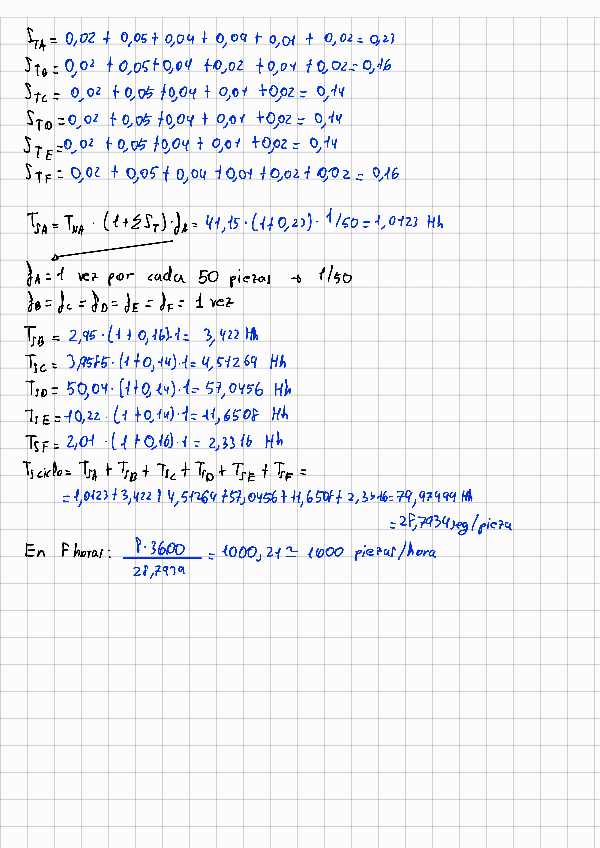 S_TA = 0,02 + 0,05 + 0,04 + 0,09 + 0,01 + 0,02 = 0,23
S_TB = 0,02 + 0,05 + 0,04 + 0,02 + 0,01 + 0,02 = 0,16
S_TC = 0,02 + 0,05 + 0,04 + 0,01 + 0,02 = 0,14
S_TD = 0,02 + 0,05 + 0,04 + 0,01 + 0,02 = 0,14
S_TE = 0,02 + 0,05 + 0,04 + 0,01 + 0,02 = 0,14
S_TF = 0,02 + 0,05 + 0,04 + 0,01 + 0,02 + 0,02 = 0,16
T_SA = T_NA · (1 + ΣS_T) · f_A = 41,15 · (1+0,23) · 1/50 = 1,0123 Hh
f_A = 1 vez por cada 50 piezas → 1/50
f_B = f_C = f_D = f_E = f_F = 1 vez
T_SB = 2,95 · (1 + 0,16) · 1 = 3,422 Hh
T_SC = 3,9585 · (1 + 0,14) · 1 = 4,51269 Hh
T_SD = 50,04 · (1+0,14) · 1 = 57,0456 Hh
T_SE = 10,22 · (1 + 0,14) · 1 = 11,6508 Hh
T_SF = 2,01 · (1 + 0,16) · 1 = 2,3316 Hh
T_S ciclo = T_SA + T_SB + T_SC + T_SD + T_SE + T_SF =
= 1,0123 + 3,422 + 4,51269 + 57,0456 + 11,6508 + 2,3316 = 79,97499 Hh
= 28,7939 seg/pieza
En 8 horas: 8·3600 / 28,7939 = 1000,21 ≃ 1000 piezas/hora